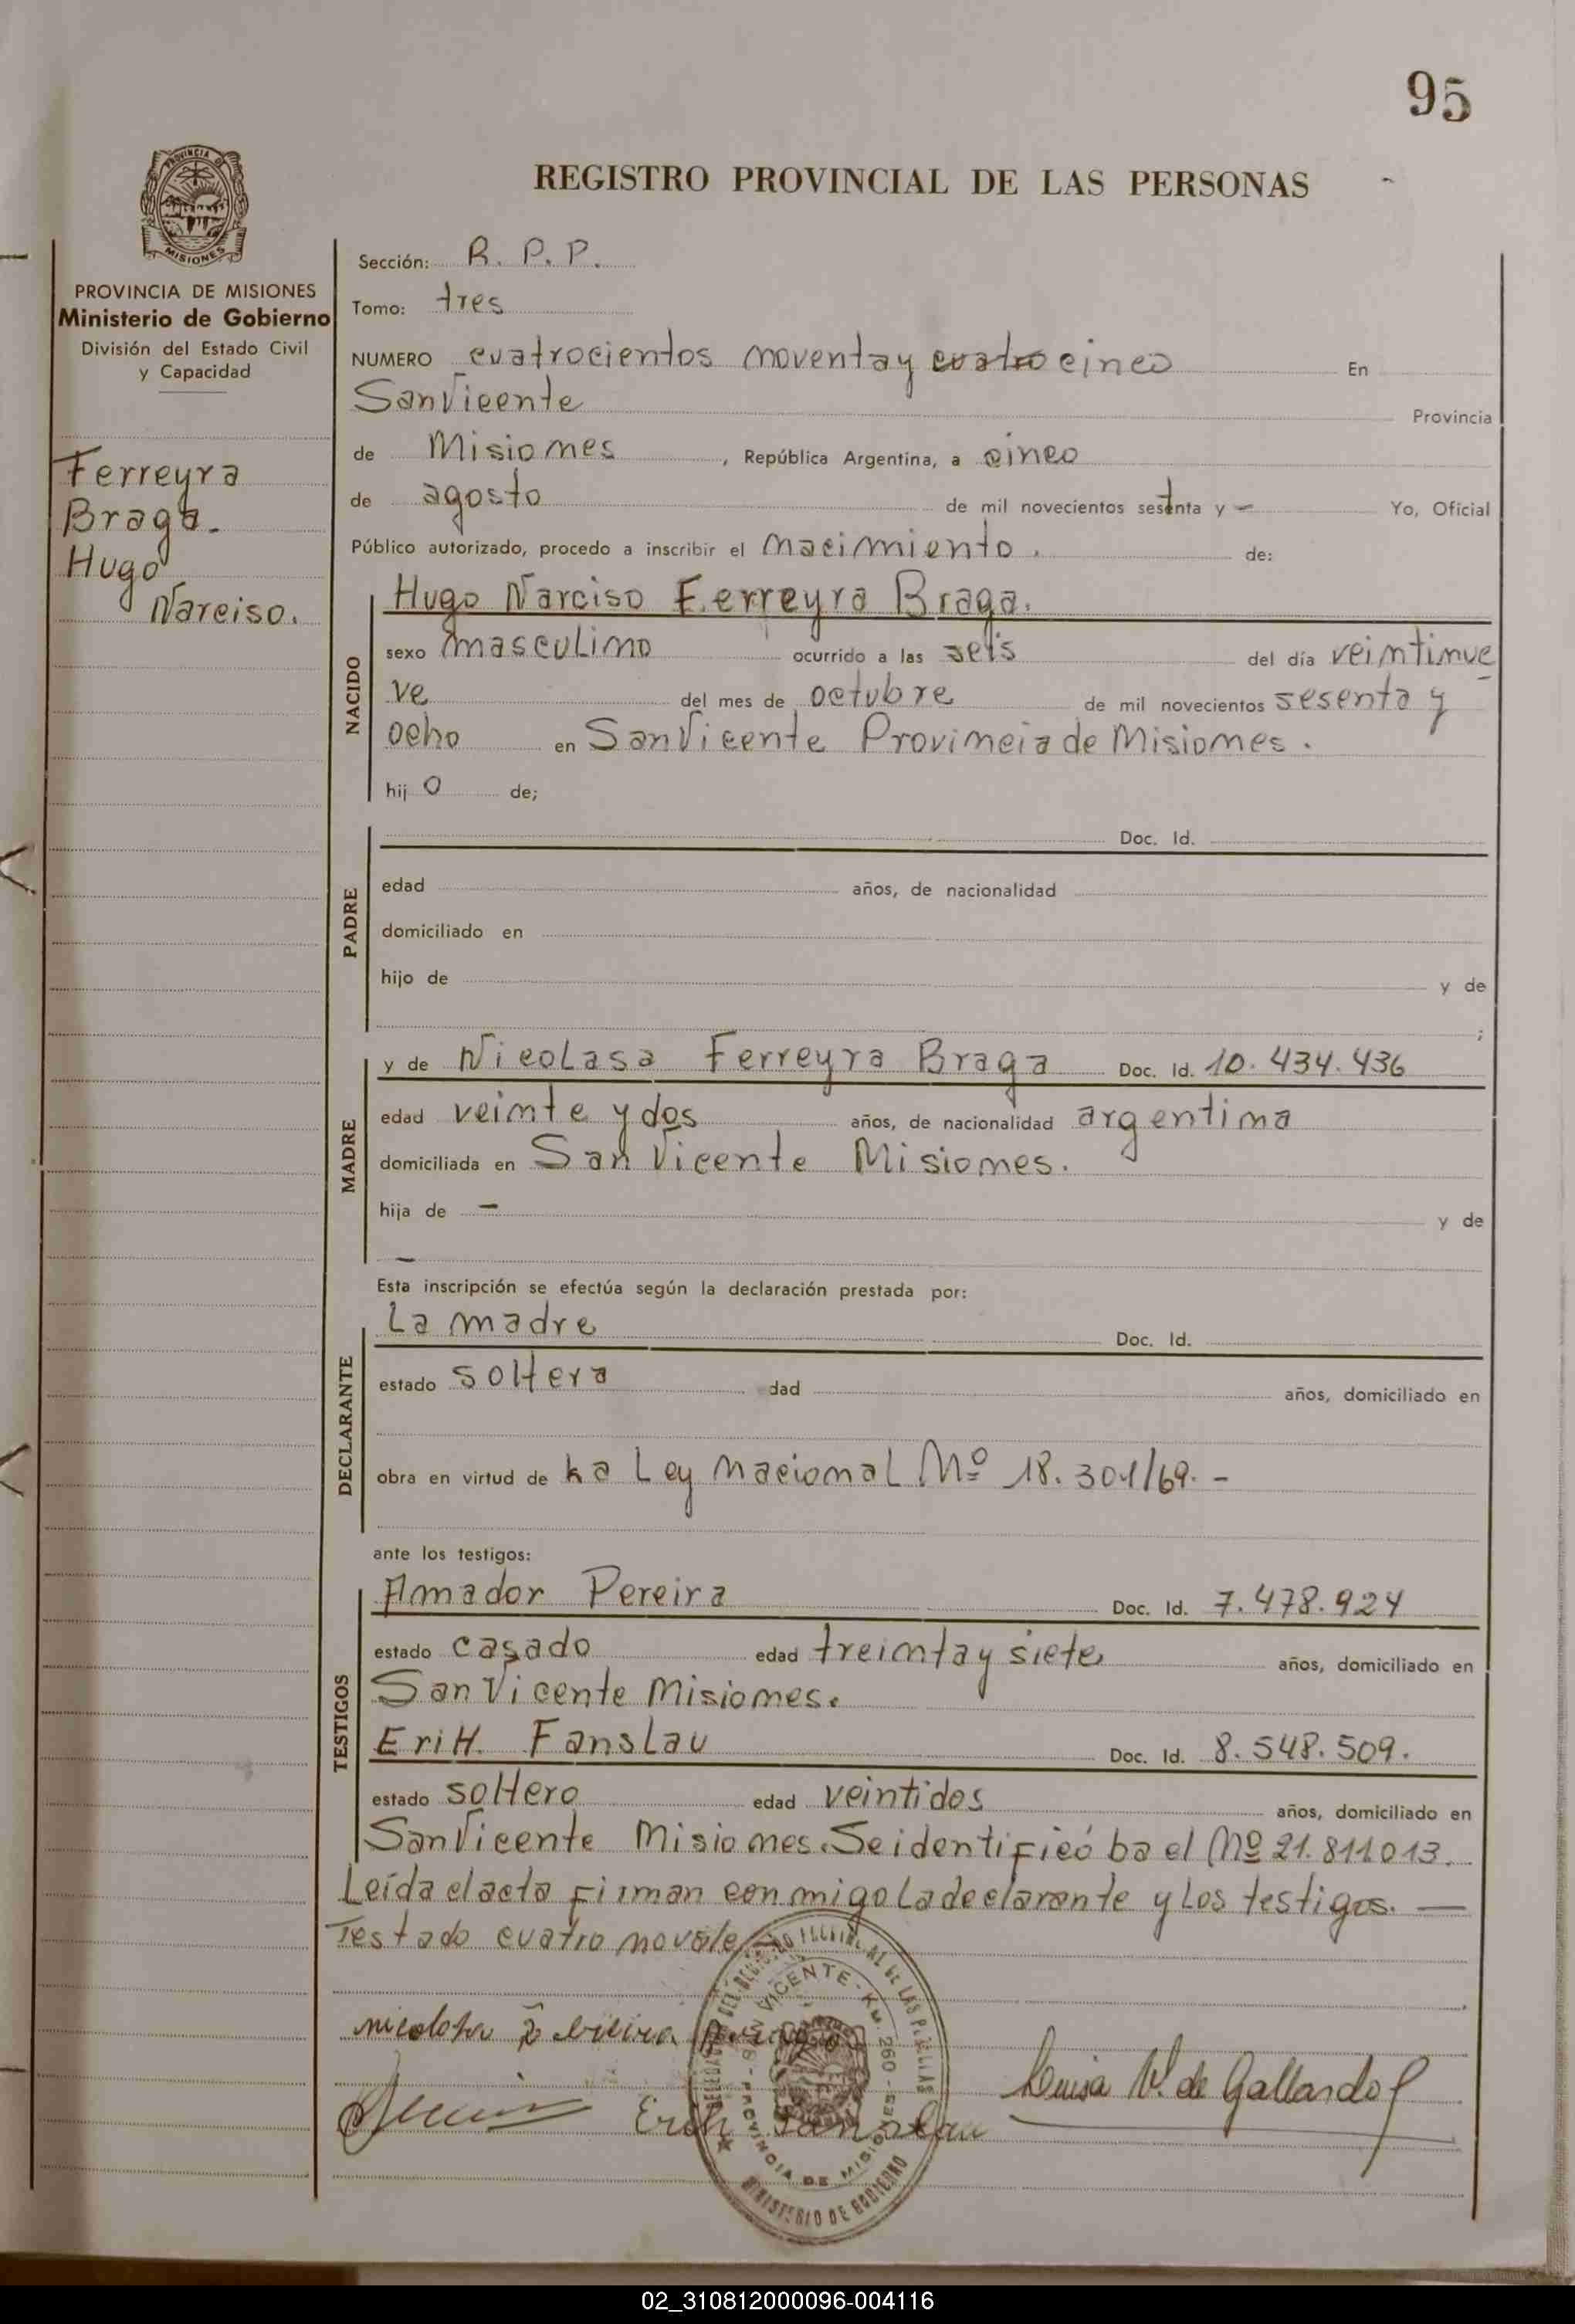 95
REGISTRO PROVINCIAL DE LAS PERSONAS
PROVINCIA DE MISIONES
Ministerio de Gobierno
División del Estado Civil
y Capacidad
Ferreyra
Braga.
Hugo
Narciso.
Sección: R. P. P.
Tomo: tres
NUMERO cuatrocientos noventa y cuatro cinco En
San Vicente Provincia
de Misiones, República Argentina, a cinco
de agosto de mil novecientos setenta y - Yo, Oficial
Público autorizado, procedo a inscribir el nacimiento. de:
NACIDO
Hugo Narciso Ferreyra Braga.
sexo masculino ocurrido a las seis del día veintinue
ve del mes de octubre de mil novecientos sesenta y
ocho en San Vicente Provincia de Misiones.
hijo de;
PADRE
Doc. Id.
edad años, de nacionalidad
domiciliado en
hijo de y de
;
MADRE
y de Nicolasa Ferreyra Braga Doc. Id. 10.434.436
edad veinte y dos años, de nacionalidad argentina
domiciliada en San Vicente Misiones.
hija de - y de
-
Esta inscripción se efectúa según la declaración prestada por:
DECLARANTE
La madre Doc. Id.
estado soltera dad años, domiciliado en
obra en virtud de La Ley Nacional Nº 18.301/69.-
ante los testigos:
TESTIGOS
Amador Pereira Doc. Id. 7.478.924
estado casado edad treinta y siete años, domiciliado en
San Vicente Misiones.
EriH. Fanslau Doc. Id. 8.548.509.
estado soltero edad veintidos años, domiciliado en
San Vicente Misiones. Se identificó ba el Nº 21.811013.
Leída el acta firman conmigo La declarante y Los testigos. —
Testado cuatro no vale
SAN VICENTE - KM. 260 - PROVINCIA DE MISIONES
MINISTERIO DE GOBIERNO
Erich Fanslau
Luisa V. de Gallardo
02_310812000096-004116